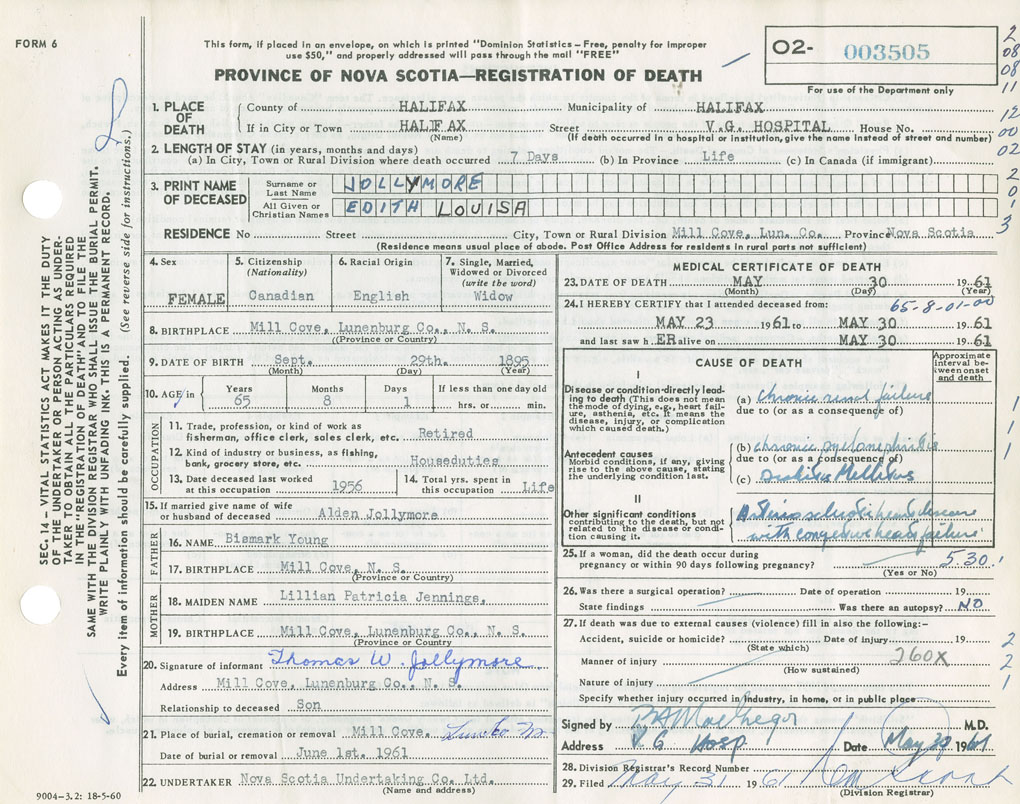 FORM 6
This form, if placed in an envelope, on which is printed "Dominion Statistics – Free, penalty for improper
use $50," and properly addressed will pass through the mail "FREE"
PROVINCE OF NOVA SCOTIA—REGISTRATION OF DEATH
O2- 003505
For use of the Department only
2
08
08
11
12
00
02
2
0
1
3
SEC. 14 – VITAL STATISTICS ACT MAKES IT THE DUTY
OF THE UNDERTAKER OR PERSON ACTING AS UNDER-
TAKER TO OBTAIN ALL THE PARTICULARS REQUIRED
IN THE "REGISTRATION OF DEATH" AND TO FILE THE
SAME WITH THE DIVISION REGISTRAR WHO SHALL ISSUE THE BURIAL PERMIT.
WRITE PLAINLY WITH UNFADING INK. THIS IS A PERMANENT RECORD.
Every item of information should be carefully supplied. (See reverse side for instructions.)
1. PLACE OF DEATH
County of HALIFAX Municipality of HALIFAX
If in City or Town HALIFAX Street V.G. HOSPITAL House No.
(Name) (If death occurred in a hospital or institution, give the name instead of street and number)
2. LENGTH OF STAY (in years, months and days)
(a) In City, Town or Rural Division where death occurred 7 Days (b) In Province Life (c) In Canada (if immigrant)
3. PRINT NAME OF DECEASED
Surname or Last Name JOLLYMORE
All Given or Christian Names EDITH LOUISA
RESIDENCE No Street City, Town or Rural Division Mill Cove, Lun. Co. Province Nova Scotia
(Residence means usual place of abode. Post Office Address for residents in rural parts not sufficient)
4. Sex FEMALE
5. Citizenship (Nationality) Canadian
6. Racial Origin English
7. Single, Married, Widowed or Divorced (write the word) Widow
8. BIRTHPLACE Mill Cove, Lunenburg Co., N. S.
(Province or Country)
9. DATE OF BIRTH Sept. 29th. 1895
(Month) (Day) (Year)
10. AGE in Years 65 Months 8 Days 1 If less than one day old hrs. or min.
OCCUPATION
11. Trade, profession, or kind of work as
fisherman, office clerk, sales clerk, etc. Retired
12. Kind of industry or business, as fishing,
bank, grocery store, etc. Houseduties
13. Date deceased last worked at this occupation 1956
14. Total yrs. spent in this occupation Life
15. If married give name of wife
or husband of deceased Alden Jollymore
FATHER
16. NAME Bismark Young
17. BIRTHPLACE Mill Cove, N. S.
(Province or Country)
MOTHER
18. MAIDEN NAME Lillian Patricia Jennings.
19. BIRTHPLACE Mill Cove, Lunenburg Co., N. S.
(Province or Country)
20. Signature of informant Thomas W. Jollymore
Address Mill Cove, Lunenburg Co., N. S.
Relationship to deceased Son
21. Place of burial, cremation or removal Mill Cove.
Date of burial or removal June 1st. 1961
22. UNDERTAKER Nova Scotia Undertaking Co. Ltd.
(Name and address)
9004-3.2: 18-5-60
MEDICAL CERTIFICATE OF DEATH
23. DATE OF DEATH MAY 30 1961
(Month) (Day) (Year)
24. I HEREBY CERTIFY that I attended deceased from: 65-8-01-00
MAY 23 1961 to MAY 30 1961
and last saw h ER alive on MAY 30 1961
CAUSE OF DEATH
Approximate interval between onset and death
I
Disease or condition directly lead-
ing to death (This does not mean
the mode of dying, e.g., heart fail-
ure, asthenia, etc. It means the
disease, injury, or complication
which caused death.)
(a) Chronic renal failure
due to (or as a consequence of)
Antecedent causes
Morbid conditions, if any, giving
rise to the above cause, stating
the underlying condition last.
(b) Chronic pyelonephritis
due to (or as a consequence of)
(c) Diabetes Mellitus
II
Other significant conditions
contributing to the death, but not
related to the disease or condi-
tion causing it.
Arteriosclerotic heart disease
with congestive heart failure
1
1
1
25. If a woman, did the death occur during
pregnancy or within 90 days following pregnancy? 530.1
(Yes or No)
26. Was there a surgical operation? Date of operation 19
State findings Was there an autopsy? NO
27. If death was due to external causes (violence) fill in also the following:-
Accident, suicide or homicide? Date of injury 19
(State which)
Manner of injury 260X
(How sustained)
Nature of injury
2
2
1
Specify whether injury occurred in industry, in home, or in public place
Signed by MacGregor M.D.
Address V.G. Hosp Date May 30 1961
28. Division Registrar's Record Number
29. Filed May 31 1961
(Division Registrar)